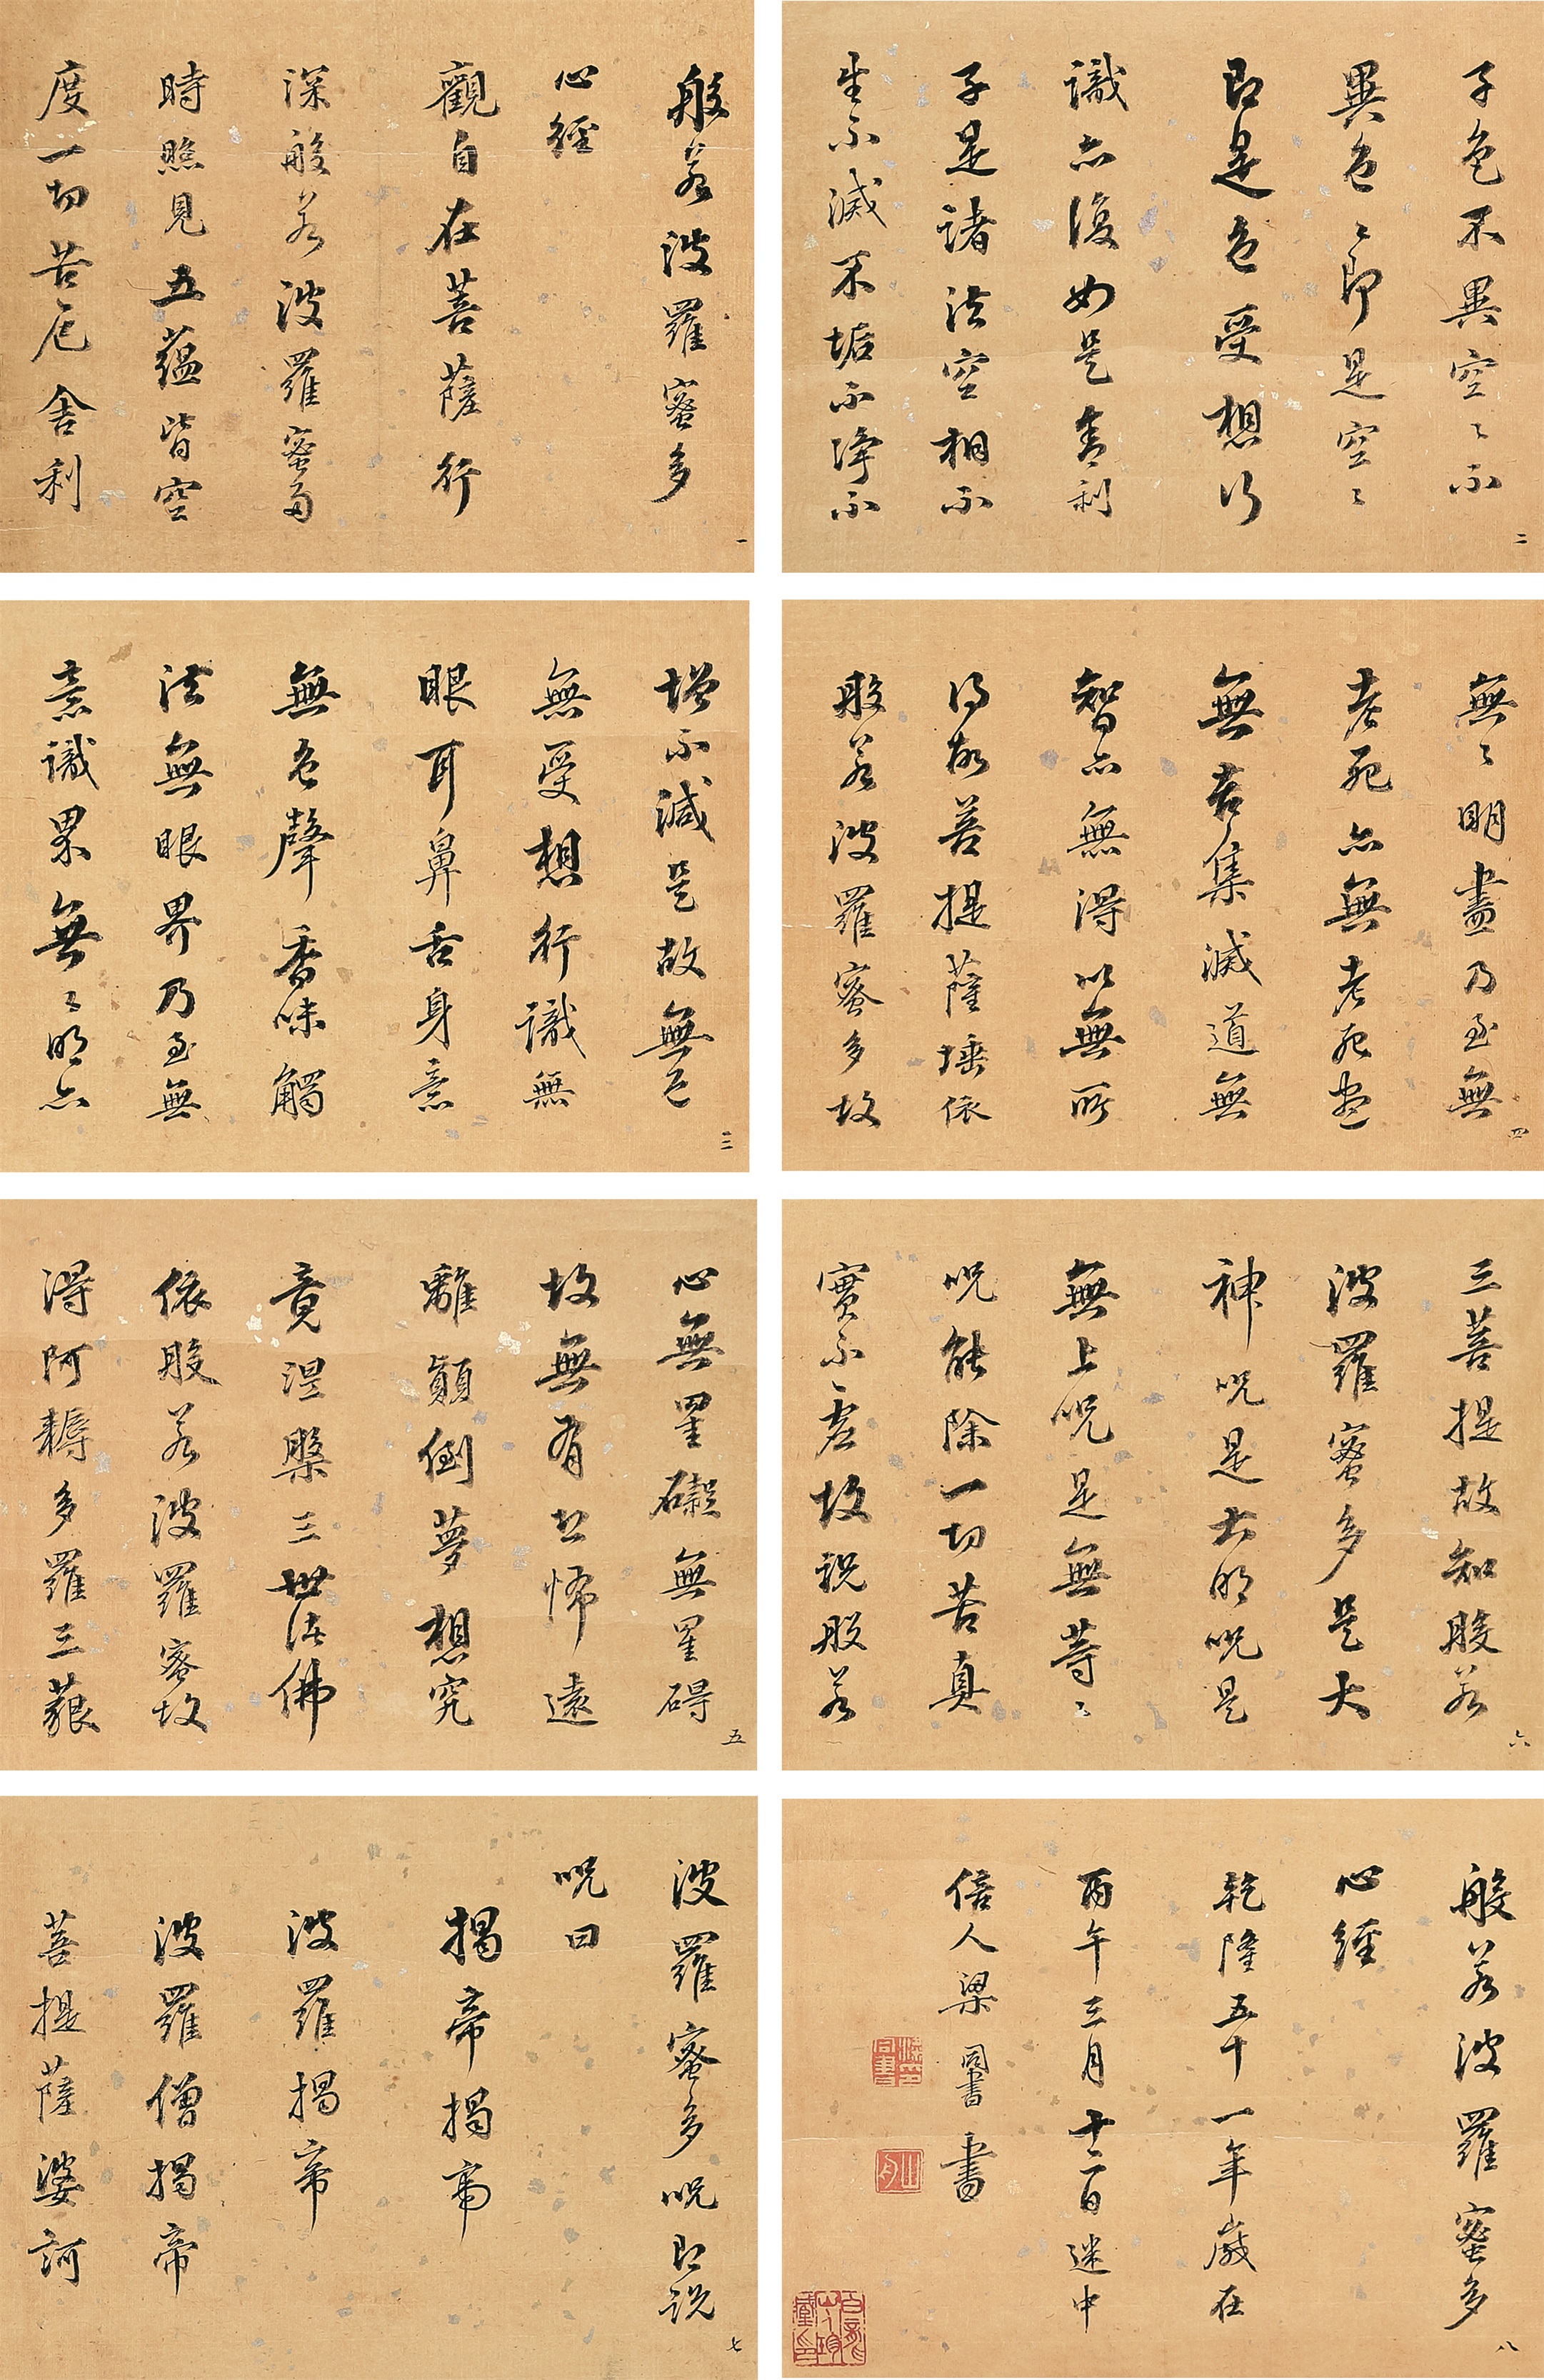 般若波羅蜜多
心經
觀自在菩薩行
深般若波羅蜜多
時照見五蘊皆空
度一切苦厄舍利
一
子色不異空〻不
異色〻即是空〻
即是色受想行
識亦復如是舍利
子是諸法空相不
生不滅不垢不淨不
二
增不減是故無色
無受想行識無
眼耳鼻舌身意
無色聲香味觸
法無眼界乃至無
意識界無〻明亦
三
無〻明盡乃至無
老死亦無老死盡
無苦集滅道無
智亦無得以無所
得故菩提薩埵依
般若波羅蜜多故
四
心無罣礙無罣碍
故無有恐怖遠
離顛倒夢想究
竟涅槃三世諸佛
依般若波羅蜜故
得阿耨多羅三藐
五
三菩提故知般若
波羅蜜多是大
神呪是大明呪是
無上呪是無等〻
呪能除一切苦真
實不虛故說般若
六
波羅蜜多呪即說
呪曰
揭帝揭帝
波羅揭帝
波羅僧揭帝
菩提薩婆訶
七
般若波羅蜜多
心經
乾隆五十一年歲在
丙午三月十二日迷中
倍人梁同書書
八